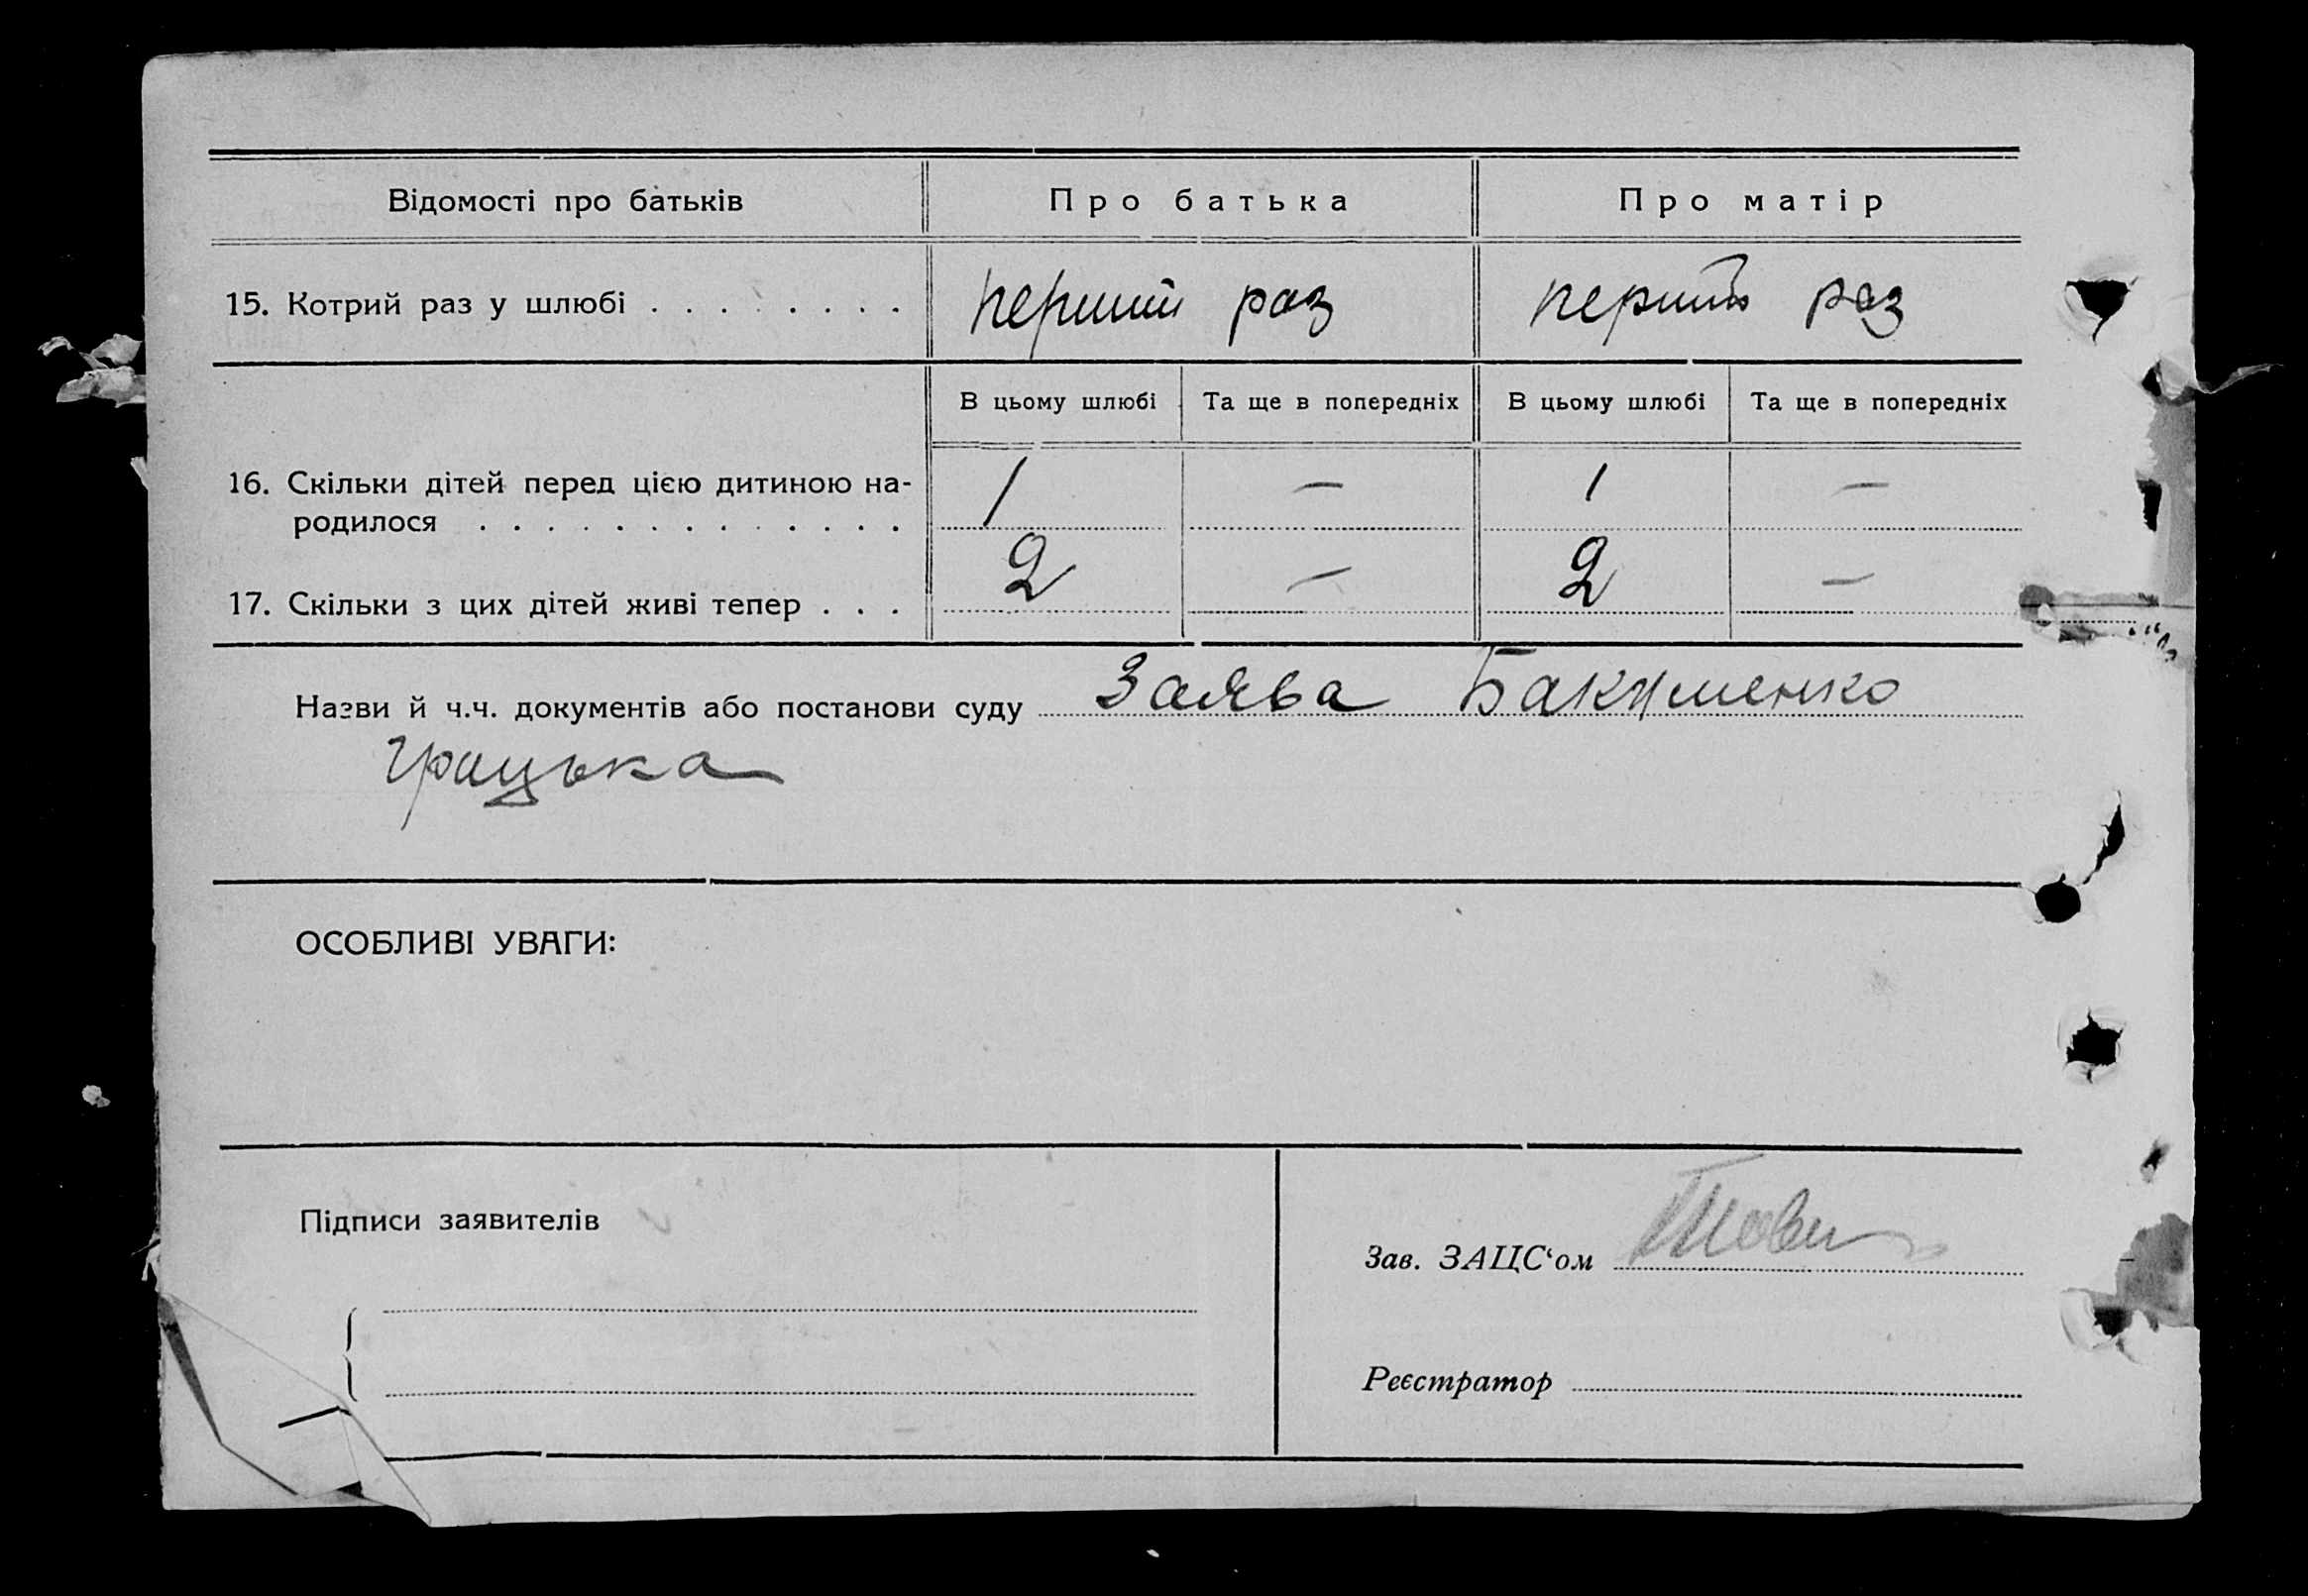 Відомості про батьків Про батька Про матір
15. Котрий раз у шлюбі . . . . . . . . перший раз перший раз
В цьому шлюбі Та ще в попередніх В цьому шлюбі Та ще в попередніх
16. Скільки дітей перед цією дитиною на- 1 — 1 —
родилося . . . . . . . . . . . . .
17. Скільки з цих дітей живі тепер . . . 2 — 2 —
Назви й ч.ч. документів або постанови суду Заява Бакуменко
Грицька
ОСОБЛИВІ УВАГИ:
Підписи заявителів
Зав. ЗАЦС‘ом
Реєстратор